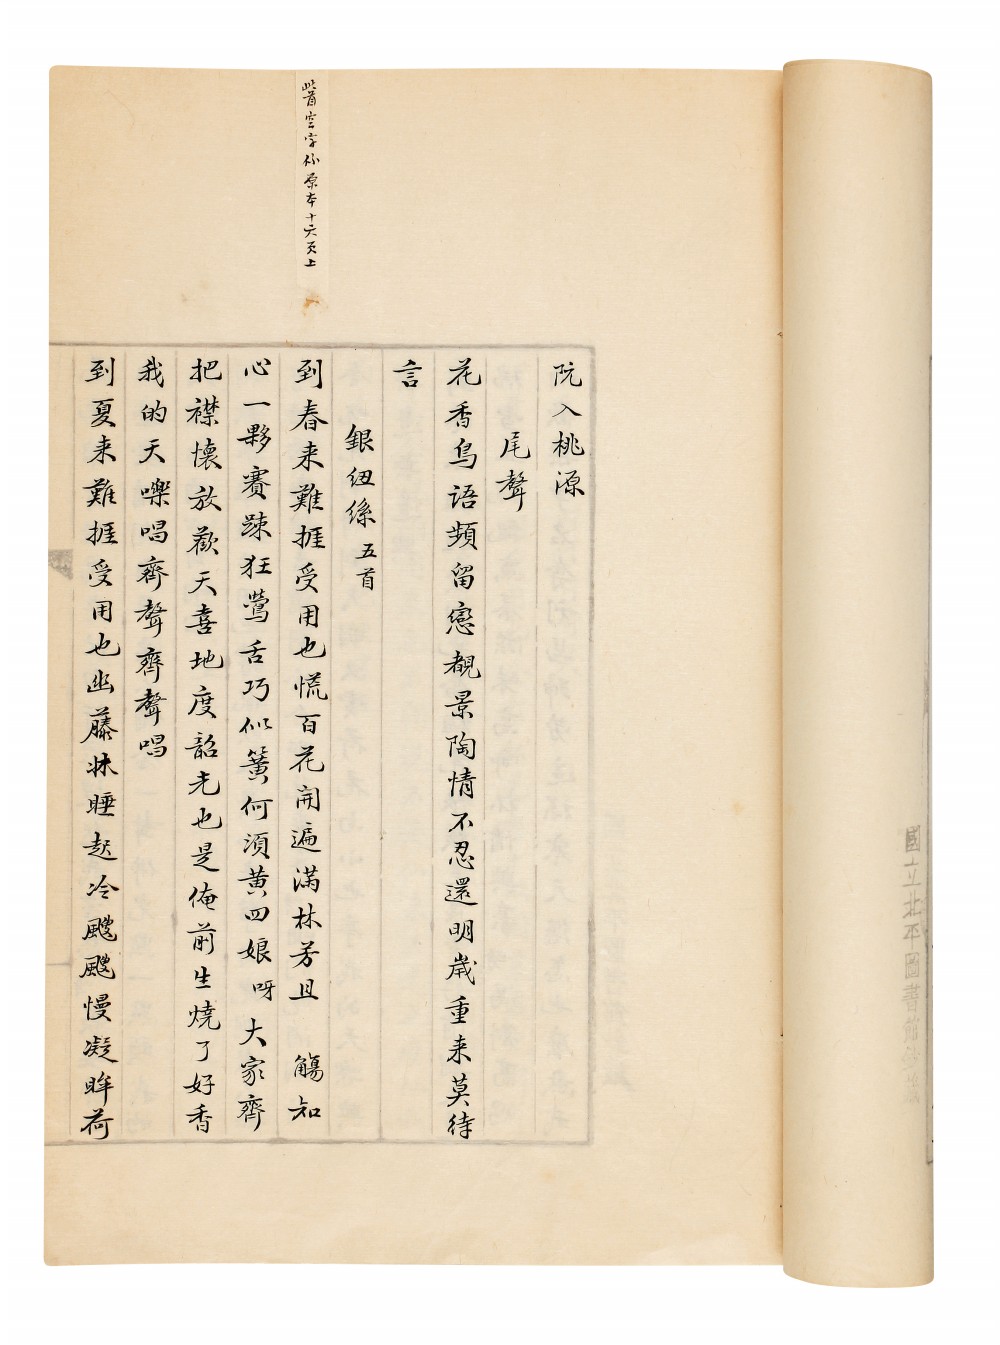 阮入桃源
尾聲
花香鳥語頻留戀覩景陶情不忍還明歲重来莫待
言
銀紐絲 五首
到春来難捱受用也慌百花開遍滿林芳且 觴知
心一夥賽踈狂鶯舌巧似簧何須黄四娘呀大家齊
把襟懷放歡天喜地度韶光也是俺前生燒了好香
我的天㗚唱齊聲齊聲唱
到夏来難捱受用也幽藤牀睡起冷颼颼慢凝眸荷
此首空字似原本十六頁上
國立北平圖書館